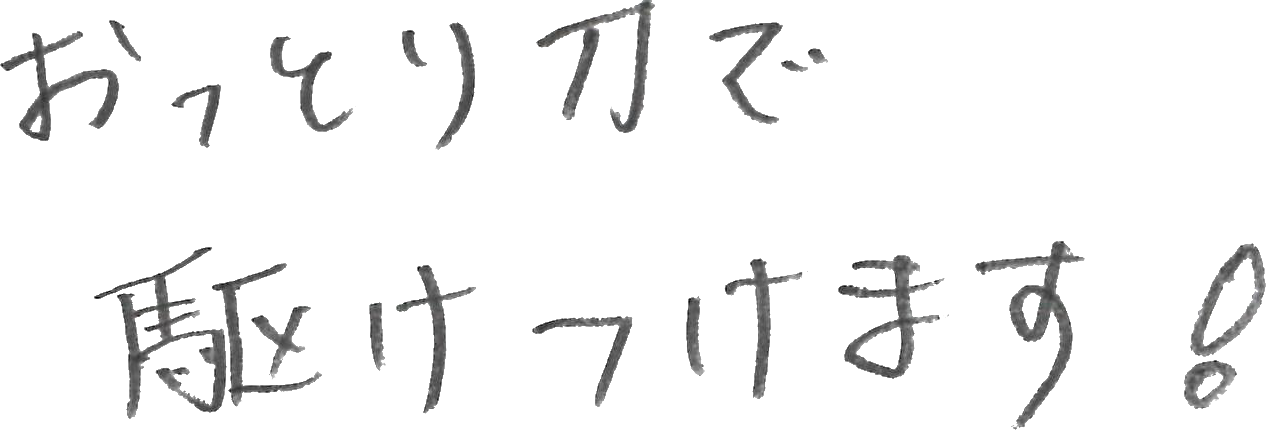 おっとり刀で
駆けつけます!